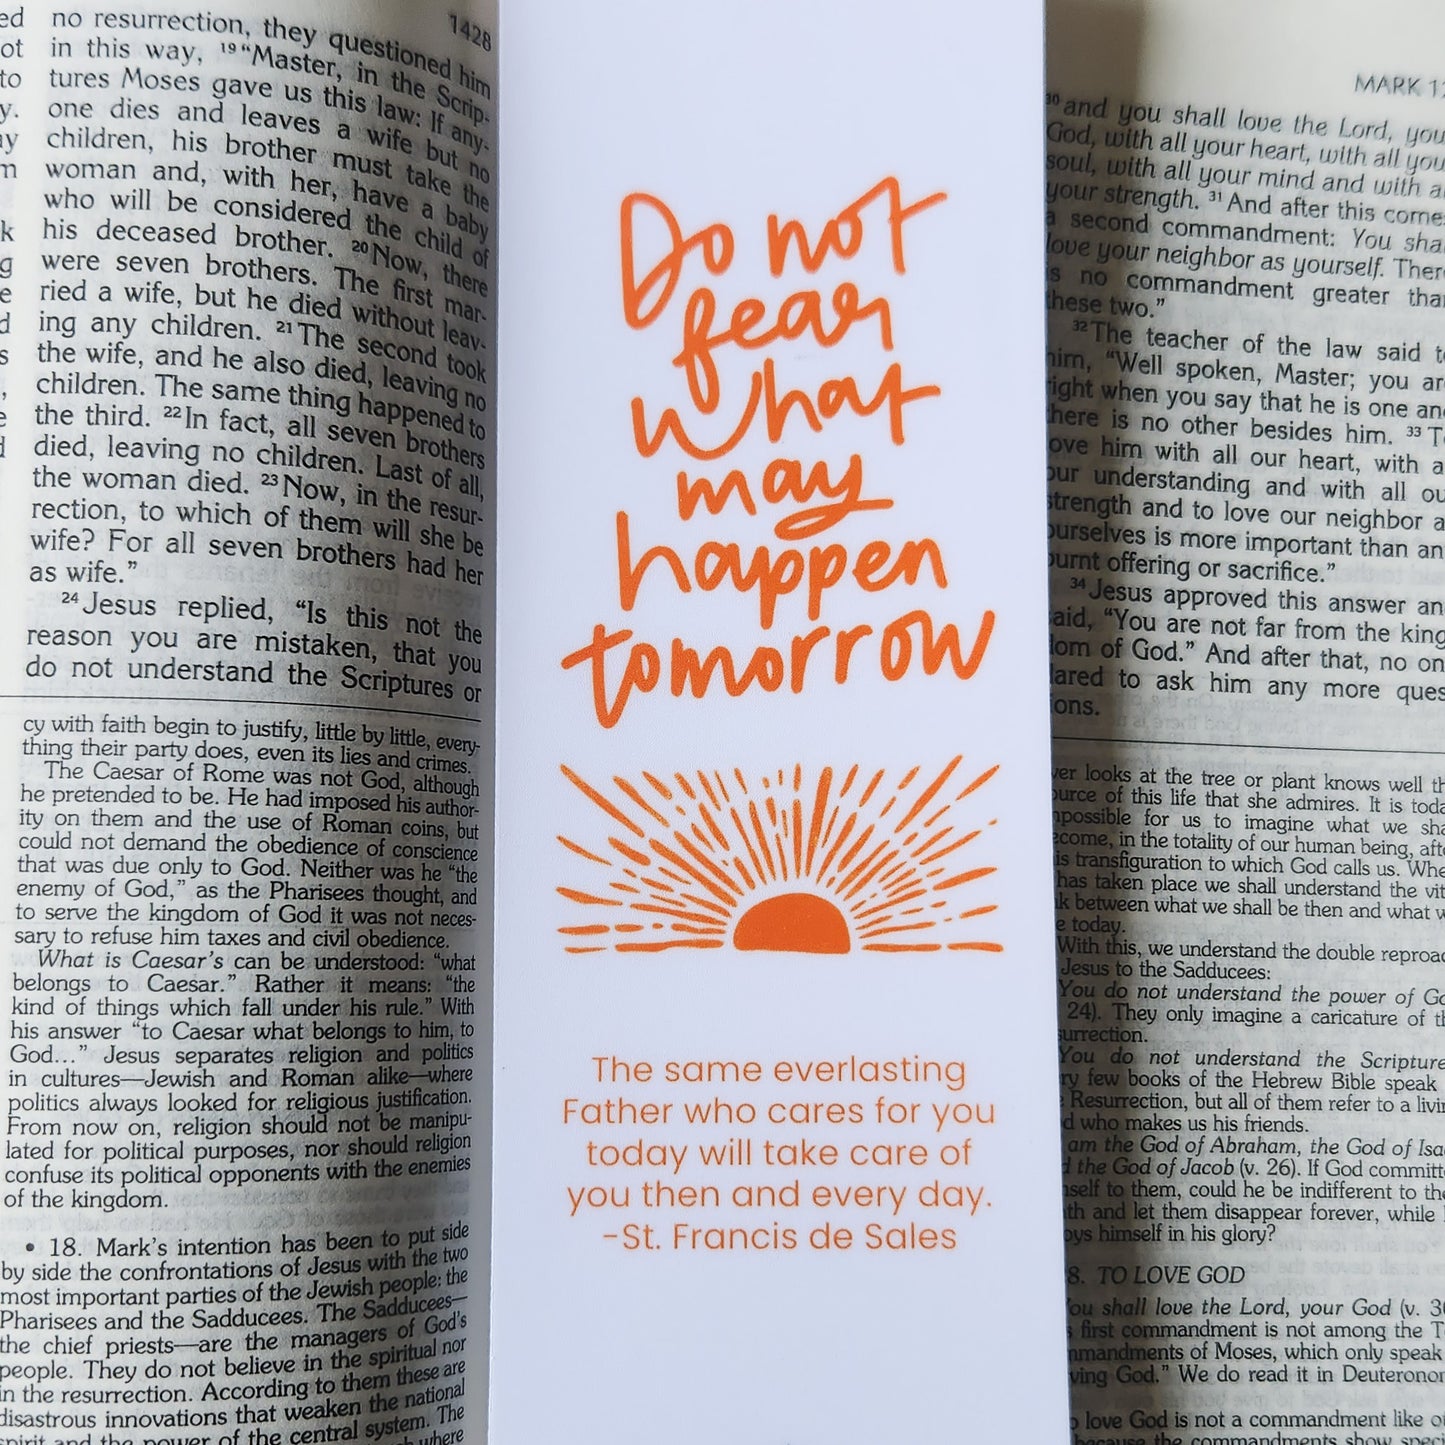 1428
no resurrection, they questioned him
in this way, 19 “Master, in the Scrip-
tures Moses gave us this law: If any-
one dies and leaves a wife but no
children, his brother must take the
woman and, with her, have a baby
who will be considered the child of
his deceased brother. 20 Now, there
were seven brothers. The first mar-
ried a wife, but he died without leav-
ing any children. 21 The second took
the wife, and he also died, leaving no
children. The same thing happened to
the third. 22 In fact, all seven brothers
died, leaving no children. Last of all,
the woman died. 23 Now, in the resur-
rection, to which of them will she be
wife? For all seven brothers had her
as wife.”
24 Jesus replied, “Is this not the
reason you are mistaken, that you
do not understand the Scriptures or
cy with faith begin to justify, little by little, every-
thing their party does, even its lies and crimes.
The Caesar of Rome was not God, although
he pretended to be. He had imposed his author-
ity on them and the use of Roman coins, but
could not demand the obedience of conscience
that was due only to God. Neither was he “the
enemy of God,” as the Pharisees thought, and
to serve the kingdom of God it was not neces-
sary to refuse him taxes and civil obedience.
What is Caesar’s can be understood: “what
belongs to Caesar.” Rather it means: “the
kind of things which fall under his rule.” With
his answer “to Caesar what belongs to him, to
God...” Jesus separates religion and politics
in cultures—Jewish and Roman alike—where
politics always looked for religious justification.
From now on, religion should not be manipu-
lated for political purposes, nor should religion
confuse its political opponents with the enemies
of the kingdom.
• 18. Mark’s intention has been to put side
by side the confrontations of Jesus with the two
most important parties of the Jewish people: the
Pharisees and the Sadducees. The Sadducees—
the chief priests—are the managers of God’s
people. They do not believe in the spiritual nor
in the resurrection. According to them these are
disastrous innovations that weaken the national
spirit and the power of the central system. The
where
Do not
fear
what
may
happen
tomorrow
The same everlasting
Father who cares for you
today will take care of
you then and every day.
-St. Francis de Sales
MARK 12
30 and you shall love the Lord, you
God, with all your heart, with all you
soul, with all your mind and with a
your strength. 31 And after this come
a second commandment: You sha
love your neighbor as yourself. Ther
is no commandment greater tha
these two.”
32 The teacher of the law said t
him, “Well spoken, Master; you ar
right when you say that he is one an
there is no other besides him. 33 T
love him with all our heart, with a
our understanding and with all ou
strength and to love our neighbor a
ourselves is more important than an
burnt offering or sacrifice.”
34 Jesus approved this answer an
said, “You are not far from the king
dom of God.” And after that, no on
dared to ask him any more ques
ions.
ver looks at the tree or plant knows well th
ource of this life that she admires. It is toda
mpossible for us to imagine what we sha
ecome, in the totality of our human being, afte
is transfiguration to which God calls us. Whe
has taken place we shall understand the vit
k between what we shall be then and what w
e today.
With this, we understand the double reproac
Jesus to the Sadducees:
You do not understand the power of Go
24). They only imagine a caricature of th
surrection.
You do not understand the Scripture
ry few books of the Hebrew Bible speak
Resurrection, but all of them refer to a livin
d who makes us his friends.
am the God of Abraham, the God of Isa
d the God of Jacob (v. 26). If God committe
mself to them, could he be indifferent to the
th and let them disappear forever, while
oys himself in his glory?
8. TO LOVE GOD
You shall love the Lord, your God (v. 30
first commandment is not among the T
mmandments of Moses, which only speak
ving God.” We do read it in Deuteronom
o love God is not a commandment like o
because the commandments show speci